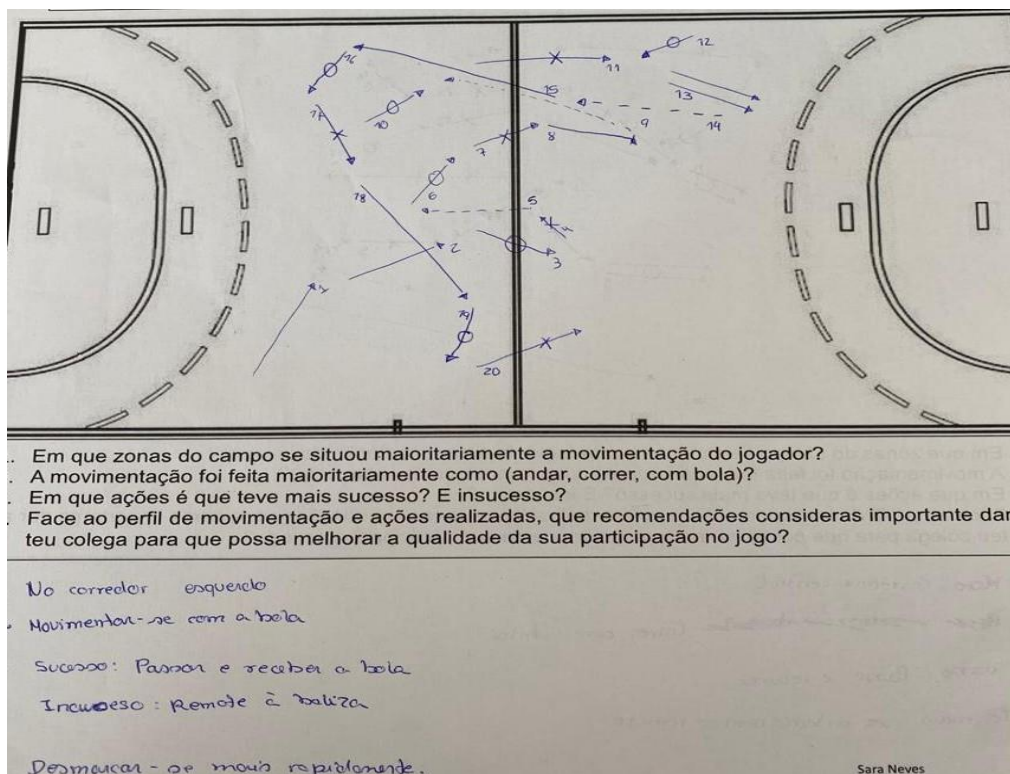 16
12
11
15
13
1A
10
9
14
7
8
6
5
18
2
4
3
1
19
20
.. Em que zonas do campo se situou maioritariamente a movimentação do jogador?
. A movimentação foi feita maioritariamente como (andar, correr, com bola)?
. Em que ações é que teve mais sucesso? E insucesso?
. Face ao perfil de movimentação e ações realizadas, que recomendações consideras importante dar
teu colega para que possa melhorar a qualidade da sua participação no jogo?
No corredor esquerdo
. Movimentar-se com a bola
Sucesso: Passar e receber a bola
Incuceso: Remate à baliza
Desmarcar-se mais rapidamente.
Sara Neves